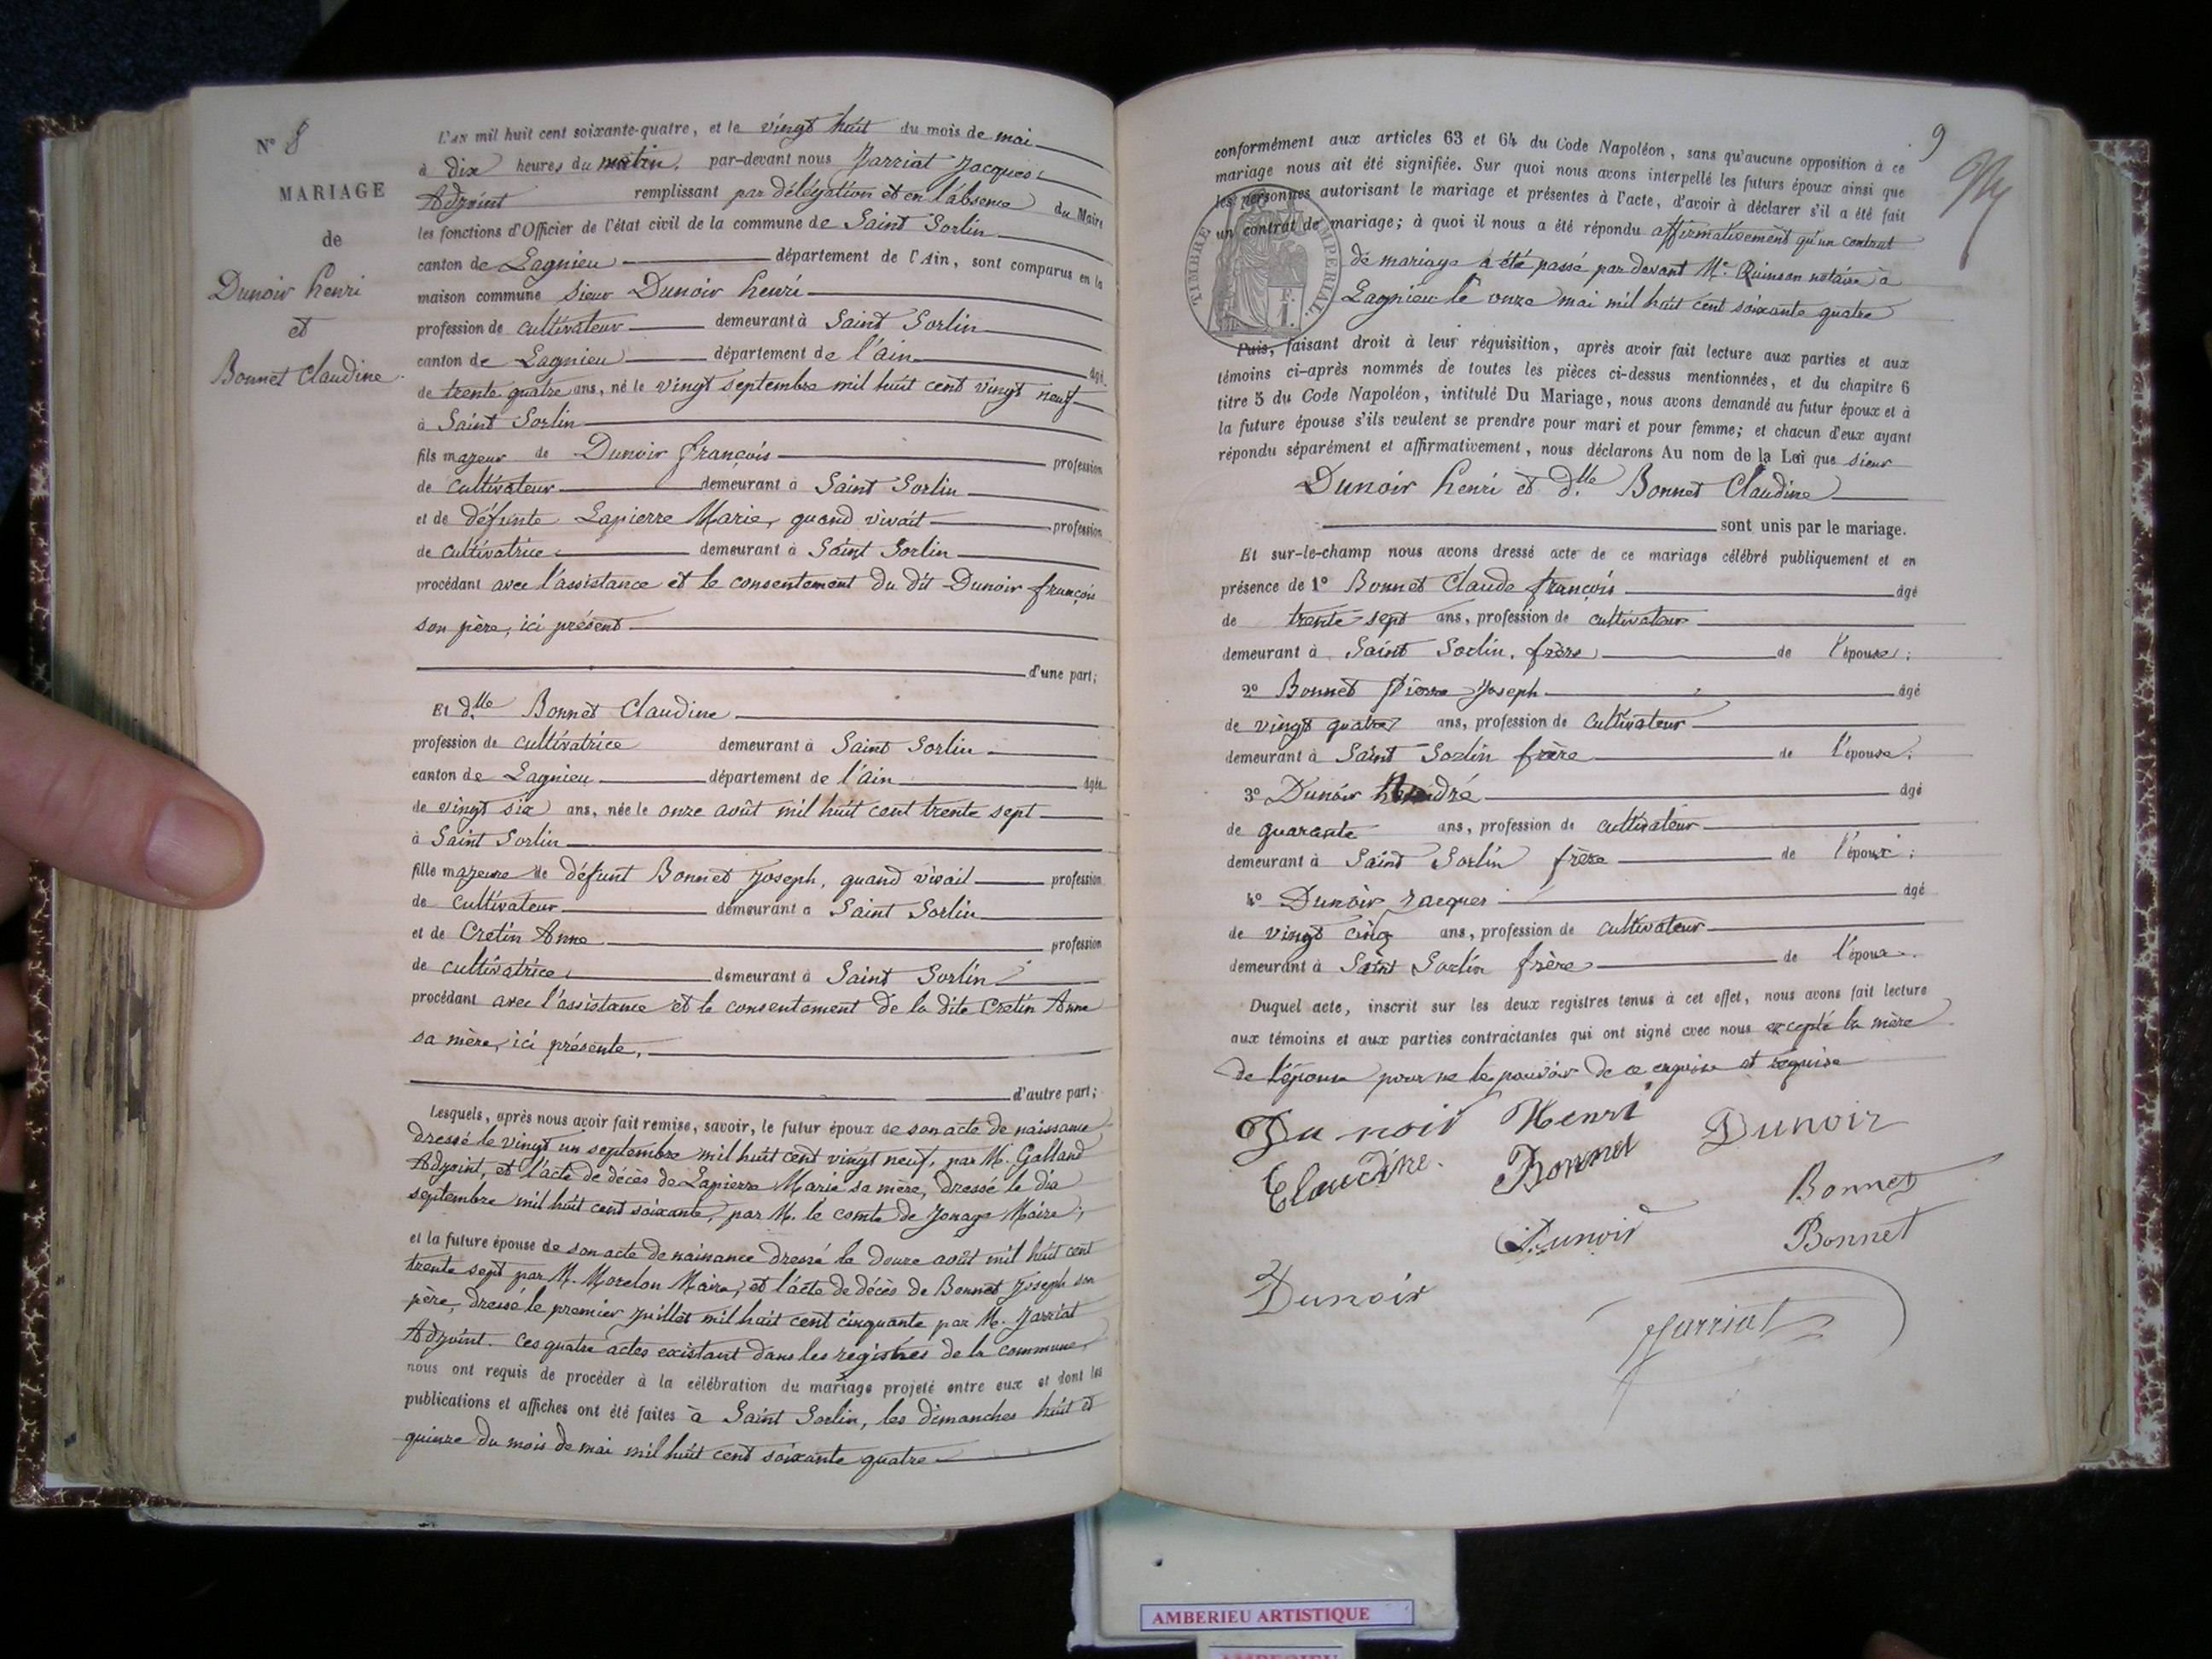 N° 8
MARIAGE
de
Dunoir henri
et
Bonnet Claudine
L'AN mil huit cent soixante-quatre, et le vingt huit du mois de mai
à dix heures du matin, par-devant nous Jarriat Jacques
Adjoint remplissant par délégation et en l'absence du Maire
les fonctions d'Officier de l'état civil de la commune de Saint Sorlin
canton de Lagnieu département de l'Ain, sont comparus en la
maison commune sieur Dunoir henri
profession de cultivateur demeurant à Saint Sorlin
canton de Lagnieu département de l'ain âgé
de trente quatre ans, né le vingt septembre mil huit cent vingt neuf
à Saint Sorlin
fils majeur de Dunoir françois profession
de cultivateur demeurant à Saint Sorlin
et de défunte Lapierre Marie, quand vivait profession
de cultivatrice demeurant à Saint Sorlin
procédant avec l'assistance et le consentement du dit Dunoir françois
son père, ici présent
d'une part;
Et dlle Bonnet Claudine
profession de cultivatrice demeurant à Saint Sorlin
canton de Lagnieu département de l'ain âgée
de vingt six ans, née le onze août mil huit cent trente sept
à Saint Sorlin
fille majeure de défunt Bonnet Joseph, quand vivait profession
de cultivateur demeurant à Saint Sorlin
et de Cretin Anne profession
de cultivatrice demeurant à Saint Sorlin
procédant avec l'assistance et le consentement de la dite Cretin Anne
sa mère, ici présente,
d'autre part;
Lesquels, après nous avoir fait remise, savoir, le futur époux de son acte de naissance
dressé le vingt un septembre mil huit cent vingt neuf, par M. Galland
Adjoint, et l'acte de décès de Lapierre Marie sa mère, dressé le dix
septembre mil huit cent soixante, par M. le comte de Jonage Maire;
et la future épouse de son acte de naissance dressé le douze août mil huit cent
trente sept par M. Morelon Maire, et l'acte de décès de Bonnet Joseph son
père, dressé le premier juillet mil huit cent cinquante par M. Jarriat
Adjoint. Ces quatre actes existant dans les registres de la commune,
nous ont requis de procéder à la célébration du mariage projeté entre eux et dont les
publications et affiches ont été faites à Saint Sorlin, les dimanches huit et
quinze du mois de mai mil huit cent soixante quatre
9
conformément aux articles 63 et 64 du Code Napoléon, sans qu'aucune opposition à ce
mariage nous ait été signifiée. Sur quoi nous avons interpellé les futurs époux ainsi que
les personnes autorisant le mariage et présentes à l'acte, d'avoir à déclarer s'il a été fait
un contrat de mariage; à quoi il nous a été répondu affirmativement qu'un contrat
de mariage a été passé par devant Me. Quinson notaire à
Lagnieu le onze mai mil huit cent soixante quatre
TIMBRE IMPERIAL
Puis, faisant droit à leur réquisition, après avoir fait lecture aux parties et aux
témoins ci-après nommés de toutes les pièces ci-dessus mentionnées, et du chapitre 6
titre 5 du Code Napoléon, intitulé Du Mariage, nous avons demandé au futur époux et à
la future épouse s'ils veulent se prendre pour mari et pour femme; et chacun d'eux ayant
répondu séparément et affirmativement, nous déclarons Au nom de la Loi que sieur
Dunoir henri et dlle Bonnet Claudine
sont unis par le mariage.
Et sur-le-champ nous avons dressé acte de ce mariage célébré publiquement et en
présence de 1° Bonnet Claude françois âgé
de trente sept ans, profession de cultivateur
demeurant à Saint Sorlin, frère de l'épouse;
2° Bonnet Pierre Joseph âgé
de vingt quatre ans, profession de cultivateur
demeurant à Saint Sorlin frère de l'épouse;
3° Dunoir âgé
de quarante ans, profession de cultivateur
demeurant à Saint Sorlin frère de l'époux;
4° Dunoir Jacques âgé
de vingt cinq ans, profession de cultivateur
demeurant à Saint Sorlin frère de l'époux.
Duquel acte, inscrit sur les deux registres tenus à cet effet, nous avons fait lecture
aux témoins et aux parties contractantes qui ont signé avec nous excepté la mère
de l'épouse pour ne le pouvoir de ce enquise et requise
Dunoir Henri Dunoir
Claudine Bonnet
Bonnet
Dunoir Bonnet
Dunoir
Jarriat
AMBERIEU ARTISTIQUE